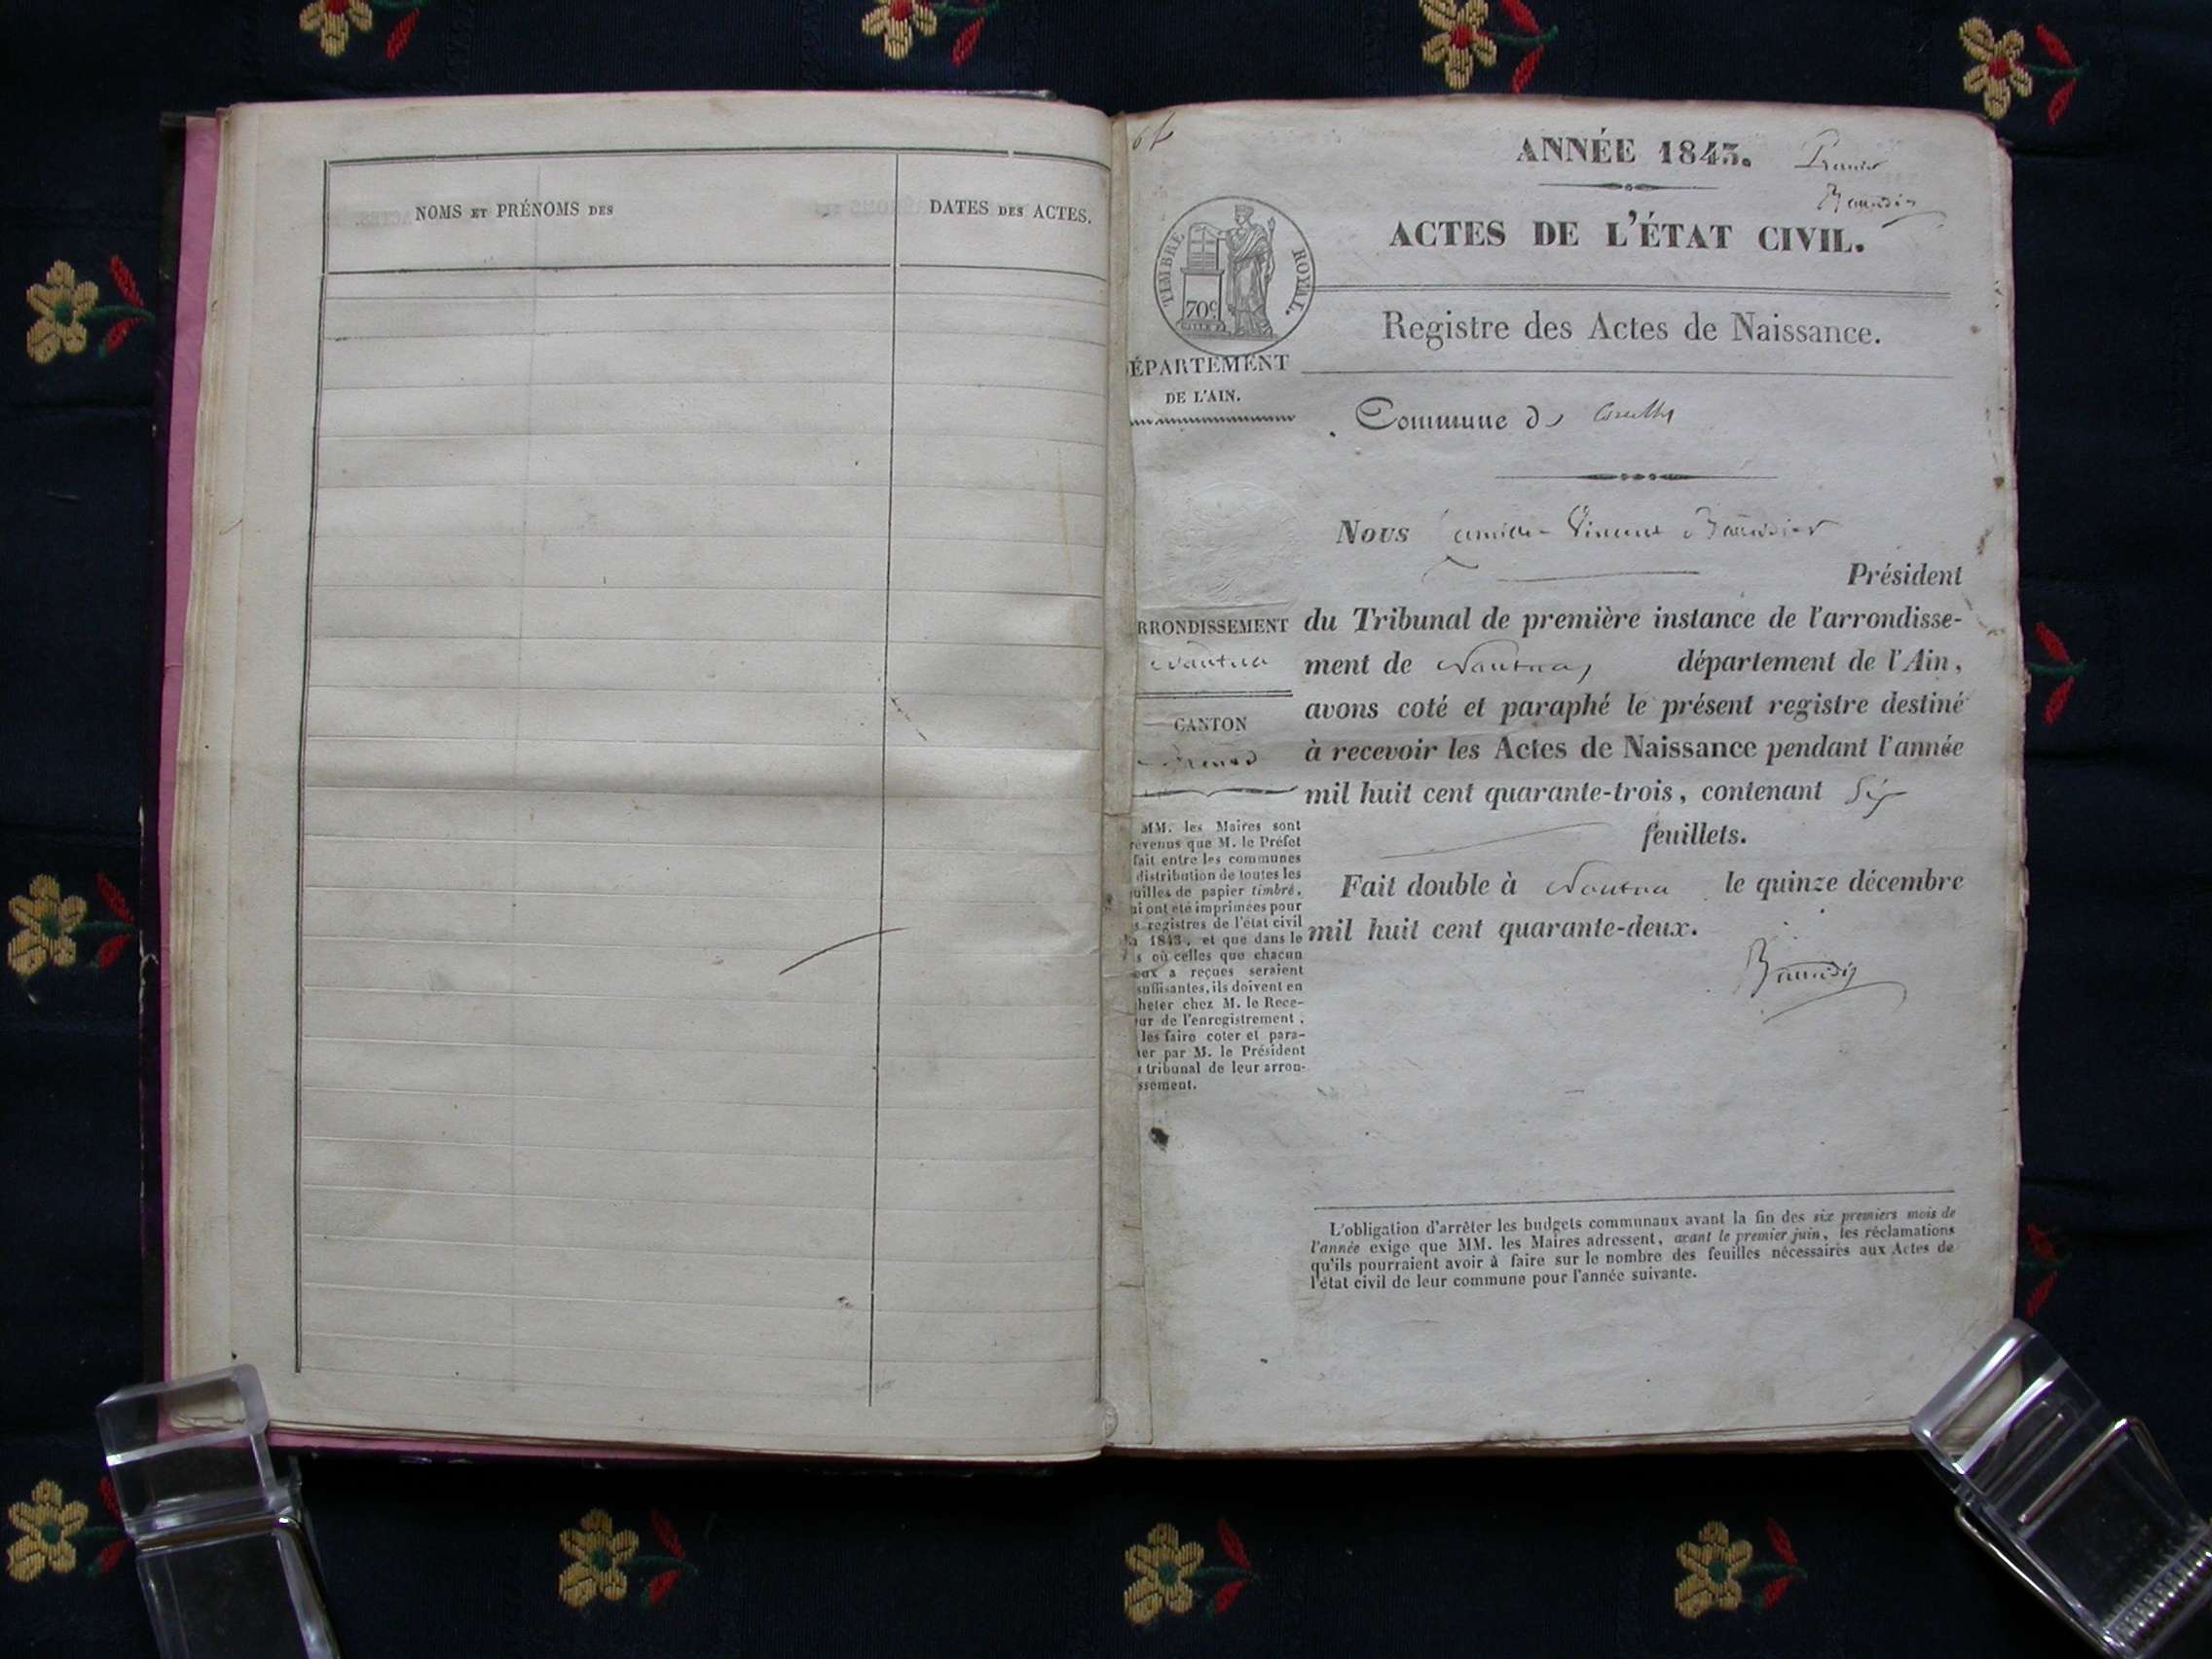 NOMS ET PRÉNOMS DES
DATES DES ACTES.
ANNÉE 1843.
Premier
ACTES DE L'ÉTAT CIVIL.
TIMBRE ROYAL.
70c
Registre des Actes de Naissance.
ÉPARTEMENT
DE L'AIN.
Commune de
Nous
Président
RRONDISSEMENT
Nantua
du Tribunal de première instance de l'arrondisse-
ment de Nantua, département de l'Ain,
CANTON
avons coté et paraphé le présent registre destiné
à recevoir les Actes de Naissance pendant l'année
mil huit cent quarante-trois, contenant Six
feuillets.
Fait double à Nantua le quinze décembre
mil huit cent quarante-deux.
MM. les Maires sont
révenus que M. le Préfet
fait entre les communes
distribution de toutes les
uilles de papier timbré,
ui ont été imprimées pour
s registres de l'état civil
1843, et que dans le
s où celles que chacun
eux a reçues seraient
suffisantes, ils doivent en
heter chez M. le Rece-
ur de l'enregistrement,
les faire coter et para-
her par M. le Président
u tribunal de leur arron-
ssement.
L'obligation d'arrêter les budgets communaux avant la fin des six premiers mois de
l'année exige que MM. les Maires adressent, avant le premier juin, les réclamations
qu'ils pourraient avoir à faire sur le nombre des feuilles nécessaires aux Actes de
l'état civil de leur commune pour l'année suivante.